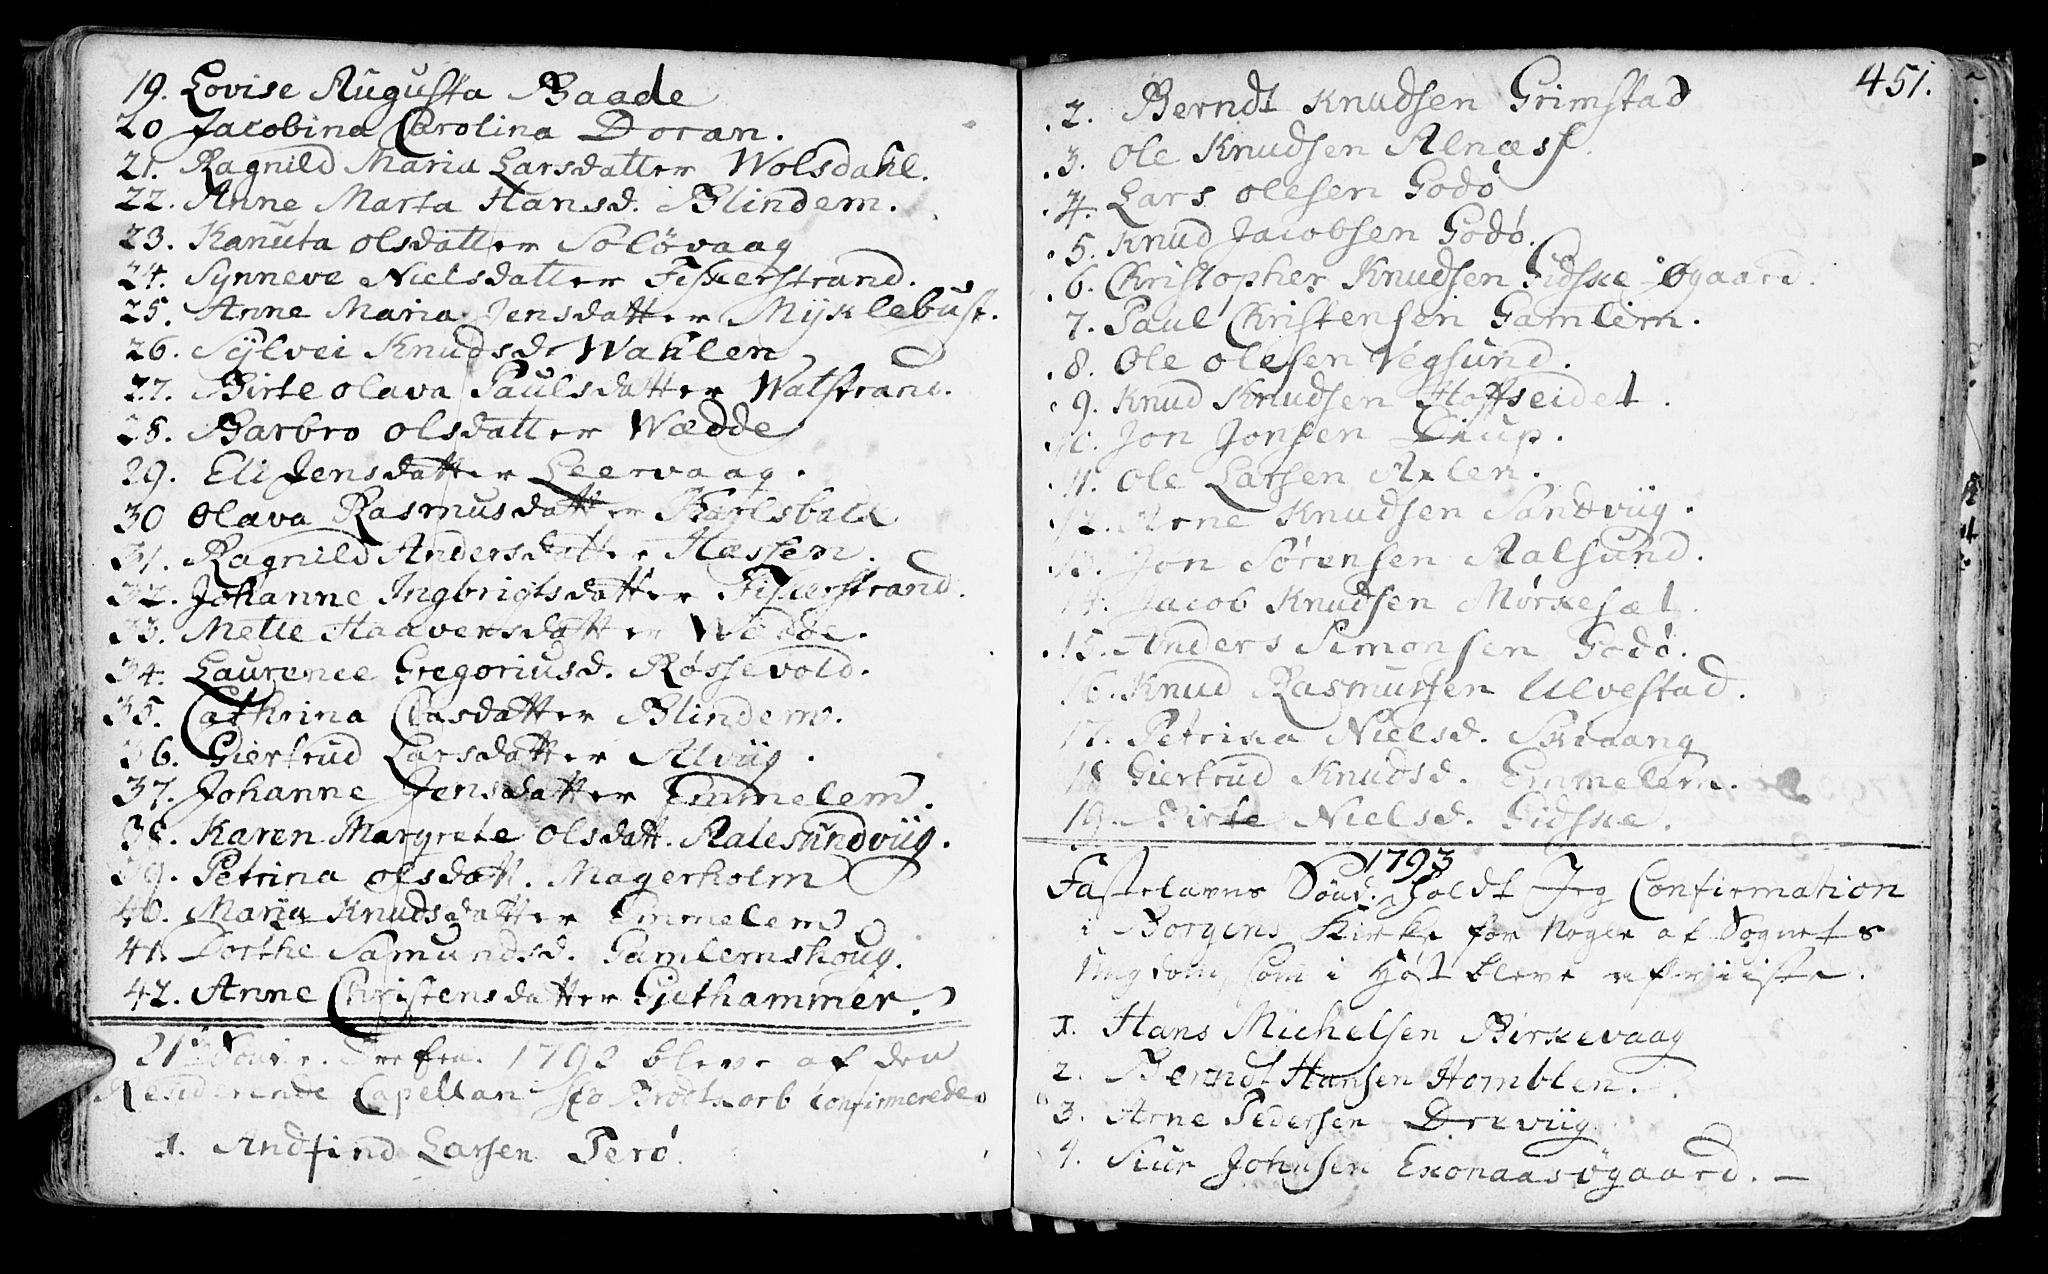 19. Lovise Augusta Baade
20 Jacobina Carolina Doran.
21. Ragnild Maria Larsdatter Wolsdahl.
22. Anne Marta Hansd. Blindem.
23. Kanuta olsdatter Soløvaag
24. Synneve Nielsdatter Fiskerstrand.
25. Anne Maria Jensdatter Myklebust.
26. Sylvei Knudsd. Wahlen
27. Birte olava Paulsdatter Watstrand.
28. Barbro olsdatter Wædde
29. Eli Jensdatter Leervaag.
30 olava Rasmusdatter
31. Ragnild Andersdatter Hæssen.
32. Johanne Ingbrigtsdatter Fiskerstrand.
33. Mette Haaversdatter Wædde.
34. Laurence Gregoriusd. Røssevold.
35. Cathrina Clasdatter Blindem.
36. Giertrud Larsdatter Alviig.
37. Johanne Jensdatter Emmelem.
38. Karen Margrete olsdatt. Aalesundviig.
39. Petrina olsdatt. Magerholm
40. Maria Knudsdatter Emmelem
41. Dorthe Samundsd. Gamlemshoug.
42. Anne Christensdatter Gjethammer.
21de Sønd. e. Trefen. 1792 bleve af den
Residerende Capellan Hr. Brodtkorb Confirmerede.
1. Andfind Larsen Perø.
451.
2. Berndt Knudsen Grimstad
3. Ole Knudsen Alnæss.
4. Lars olesen Godø
5. Knud Jacobsen Godø.
6. Christopher Knudsen Gidske Øgaard.
7. Paul Christensen Gamlem.
8. Ole olesen Vegsund.
9. Knud Knudsen Hoffseidet.
10. Jon Jonsen Diup.
11. Ole Larsen Axlen.
12. Arne Knudsen Sandviig.
13. Jon Sørensen Aalsund.
14. Jacob Knudsen Mørkesæt.
15. Anders Simonsen Godø.
16. Knud Rasmussen Ulvestad.
17. Petrina Nielsd.
18 Giertrud Knudsd. Emmelem.
19. Birte Nielsd. Gidske.
1793
Fastelavns Sønd. holdt Jeg Confirmation
i Borgens Kirke for nogle af Sognets
Ungdom som i Høst bleve afviiste.
1. Hans Michelsen Birkevaag
2. Berndt Hansen Homblen.
3. Arne Pedersen Dreviig
4. Siur Johnsen Exonaasøgaard. –